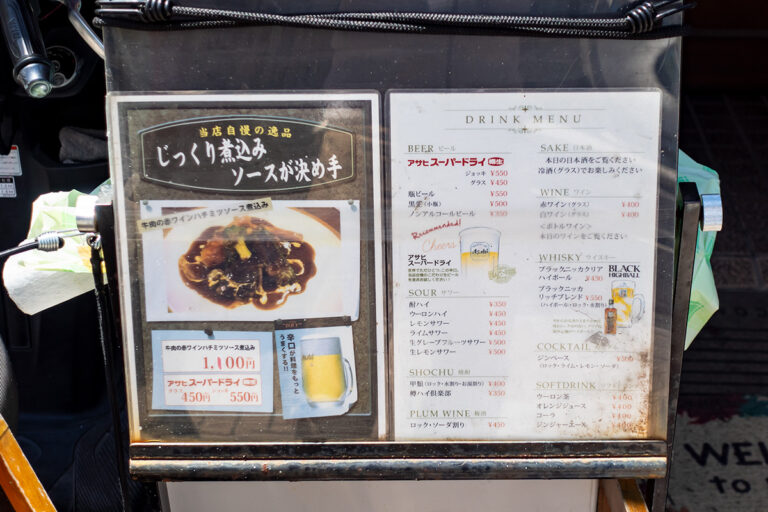 当店自慢の逸品
じっくり煮込み
ソースが決め手
牛肉の赤ワインハチミツソース煮込み
牛肉の赤ワインハチミツソース煮込み
1,100円
アサヒスーパードライ
グラス ジョッキ
450円 550円
辛口が料理をもっと
うまくする!!
DRINK MENU
BEER ビール
アサヒスーパードライ 樽生
ジョッキ ¥550
グラス ¥450
瓶ビール ¥550
黒生(小瓶) ¥500
ノンアルコールビール ¥350
Recommended!
Cheers
Asahi
アサヒ
スーパードライ
SOUR サワー
酎ハイ ¥350
ウーロンハイ ¥450
レモンサワー ¥450
ライムサワー ¥450
生グレープフルーツサワー ¥500
生レモンサワー ¥500
SHOCHU 焼酎
甲類(ロック・水割り・お湯割り) ¥400
樽ハイ倶楽部 ¥350
PLUM WINE 梅酒
ロック・ソーダ割り ¥450
SAKE 日本酒
本日の日本酒をご覧ください
冷酒(グラス)でお楽しみください
WINE ワイン
赤ワイン(グラス) ¥400
白ワイン(グラス) ¥400
<ボトルワイン>
本日のワインをご覧ください
WHISKY ウイスキー
ブラックニッカクリア
ハイボール ¥450
ブラックニッカ
リッチブレンド ¥550
(ハイボール・ロック・水割り)
BLACK
HIGHBALL
COCKTAIL
ジンベース
(ロック・ライム・レモン・ソーダ)
SOFTDRINK
ウーロン茶 ¥400
オレンジジュース ¥400
コーラ ¥400
ジンジャーエール
WEL
to